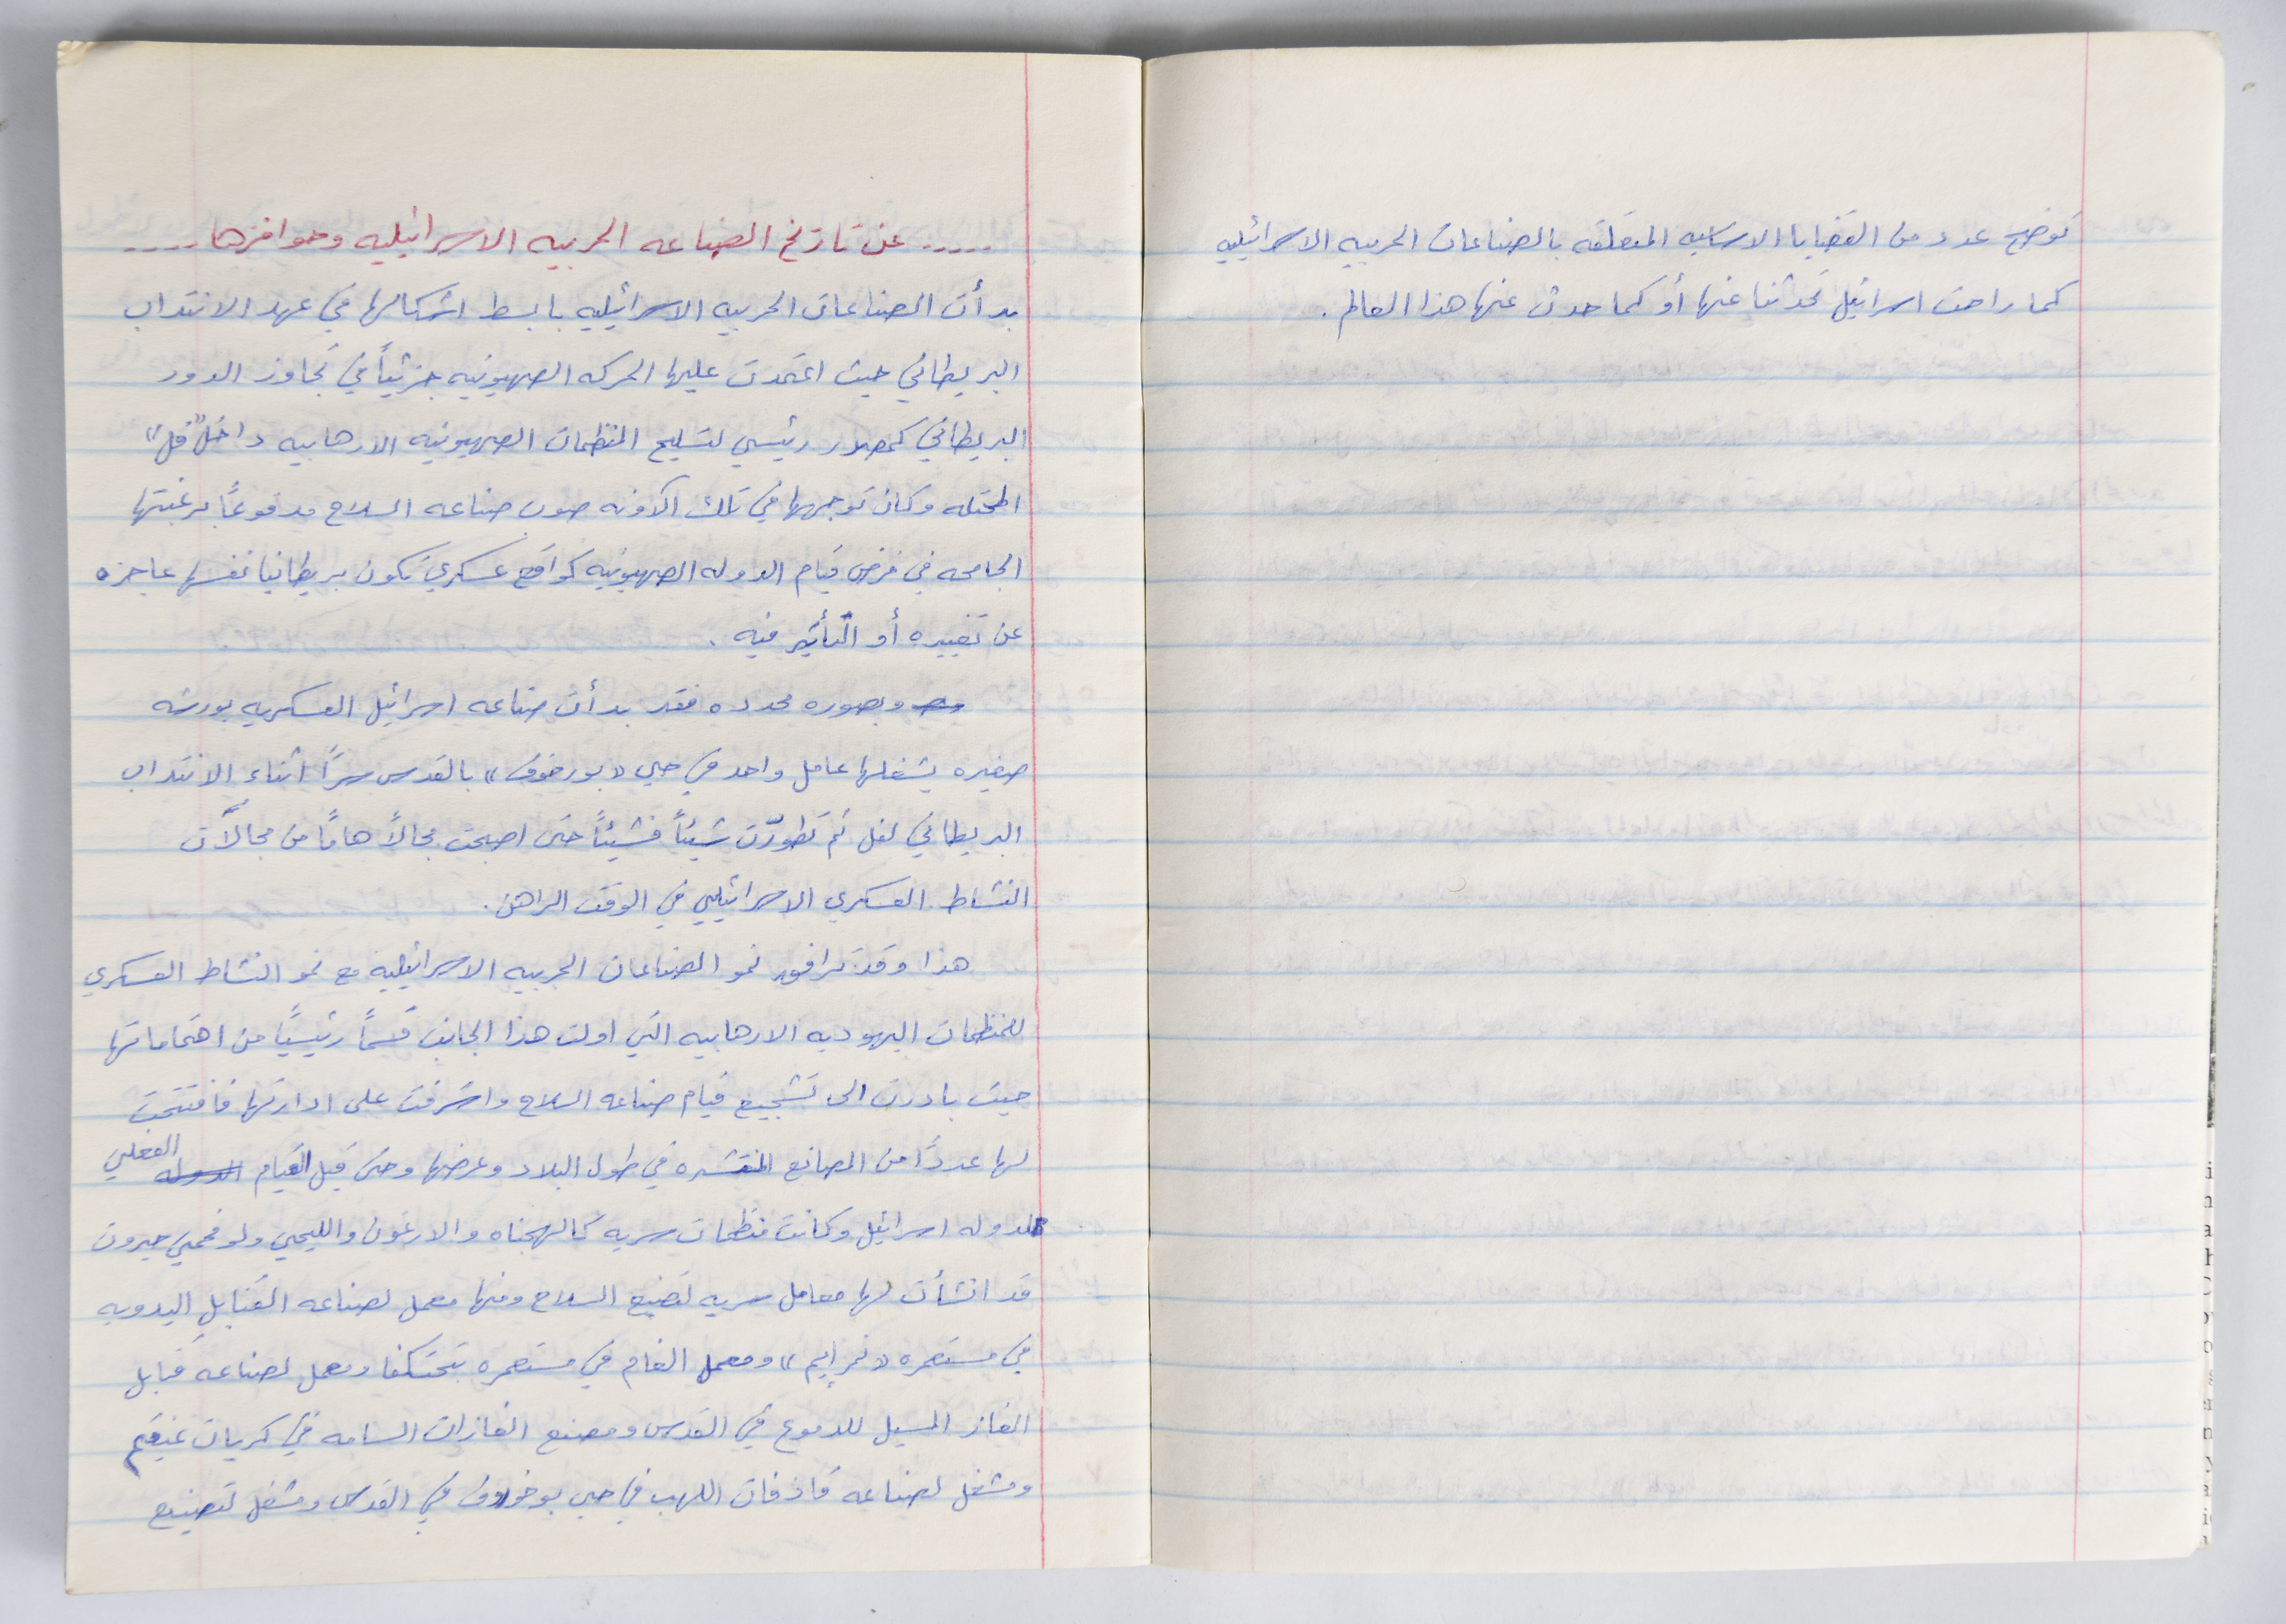 توضح عدد من القضايا الاساسيه المتعلقه بالصناعات الحربيه الاسرائيليه
كما راحت اسرائيل تحدثنا عنها أو كما حدث عنها هذا العالم .
..... عن تاريخ الصناعه الحربيه الاسرائيليه وحوافزها .....
بدأت الصناعات الحربيه الاسرائيليه بابسط اشكالها في عهد الانتداب
البريطاني حيث اعتمدت عليها الحركه الصهيونيه جزئياً في تجاوز الدور
البريطاني كمصدر رئيسي لتسليح المنظمات الصهيونيه الارهابيه داخل "فل"
المحتله وكان توجهها في تلك الآونه صوب صناعه السلاح مدفوعاً برغبتها
الجامحه في فرض قيام الدوله الصهيونيه كواقع عسكري تكون بريطانيا نفسها عاجزه
عن تغييره أو التأثير فيه .
وبصوره محدده فقد بدأت صناعه اسرائيل العسكريه بورشه
صغيره يشغلها عامل واحد في حي "بورخوف" بالقدس سراً اثناء الانتداب
البريطاني لفل ثم تطورّت شيئاً فشيئاً حتى اصبحت مجالاً هاماً من مجالات
النشاط العسكري الاسرائيلي في الوقت الراهن .
هذا وقد ترافق نمو الصناعات الحربيه الاسرائيليه مع نمو النشاط العسكري
للمنظمات اليهوديه الارهابيه التي اولت هذا الجانب قسماً رئيسياً من اهتماماتها
حيث بادرت الى تشجيع قيام صناعه السلاح واشرفت على ادارتها فافتتحت
لها عدداً من المصانع المنتشره في طول البلاد وعرضها وحتى قبل القيام الدوله الفعلي
لدوله اسرائيل وكانت منظمات سريه كالهجناه والارغون والليحي ولو حمي حيروت
قد انشأت لها معامل سريه لتصنيع السلاح ومنها معمل لصناعه القنابل اليدويه
في مستعمره "نمرايم" ومعمل الغام في مستعمره بتحتكفا ومعمل لصناعه قنابل
الغاز المسيل للدموع في القدس ومصنع الغازات السامه في كريات عنفيم
ومشغل لصناعه قاذفات اللهب في حي بوخوروف في القدس ومشغل لتصنيع